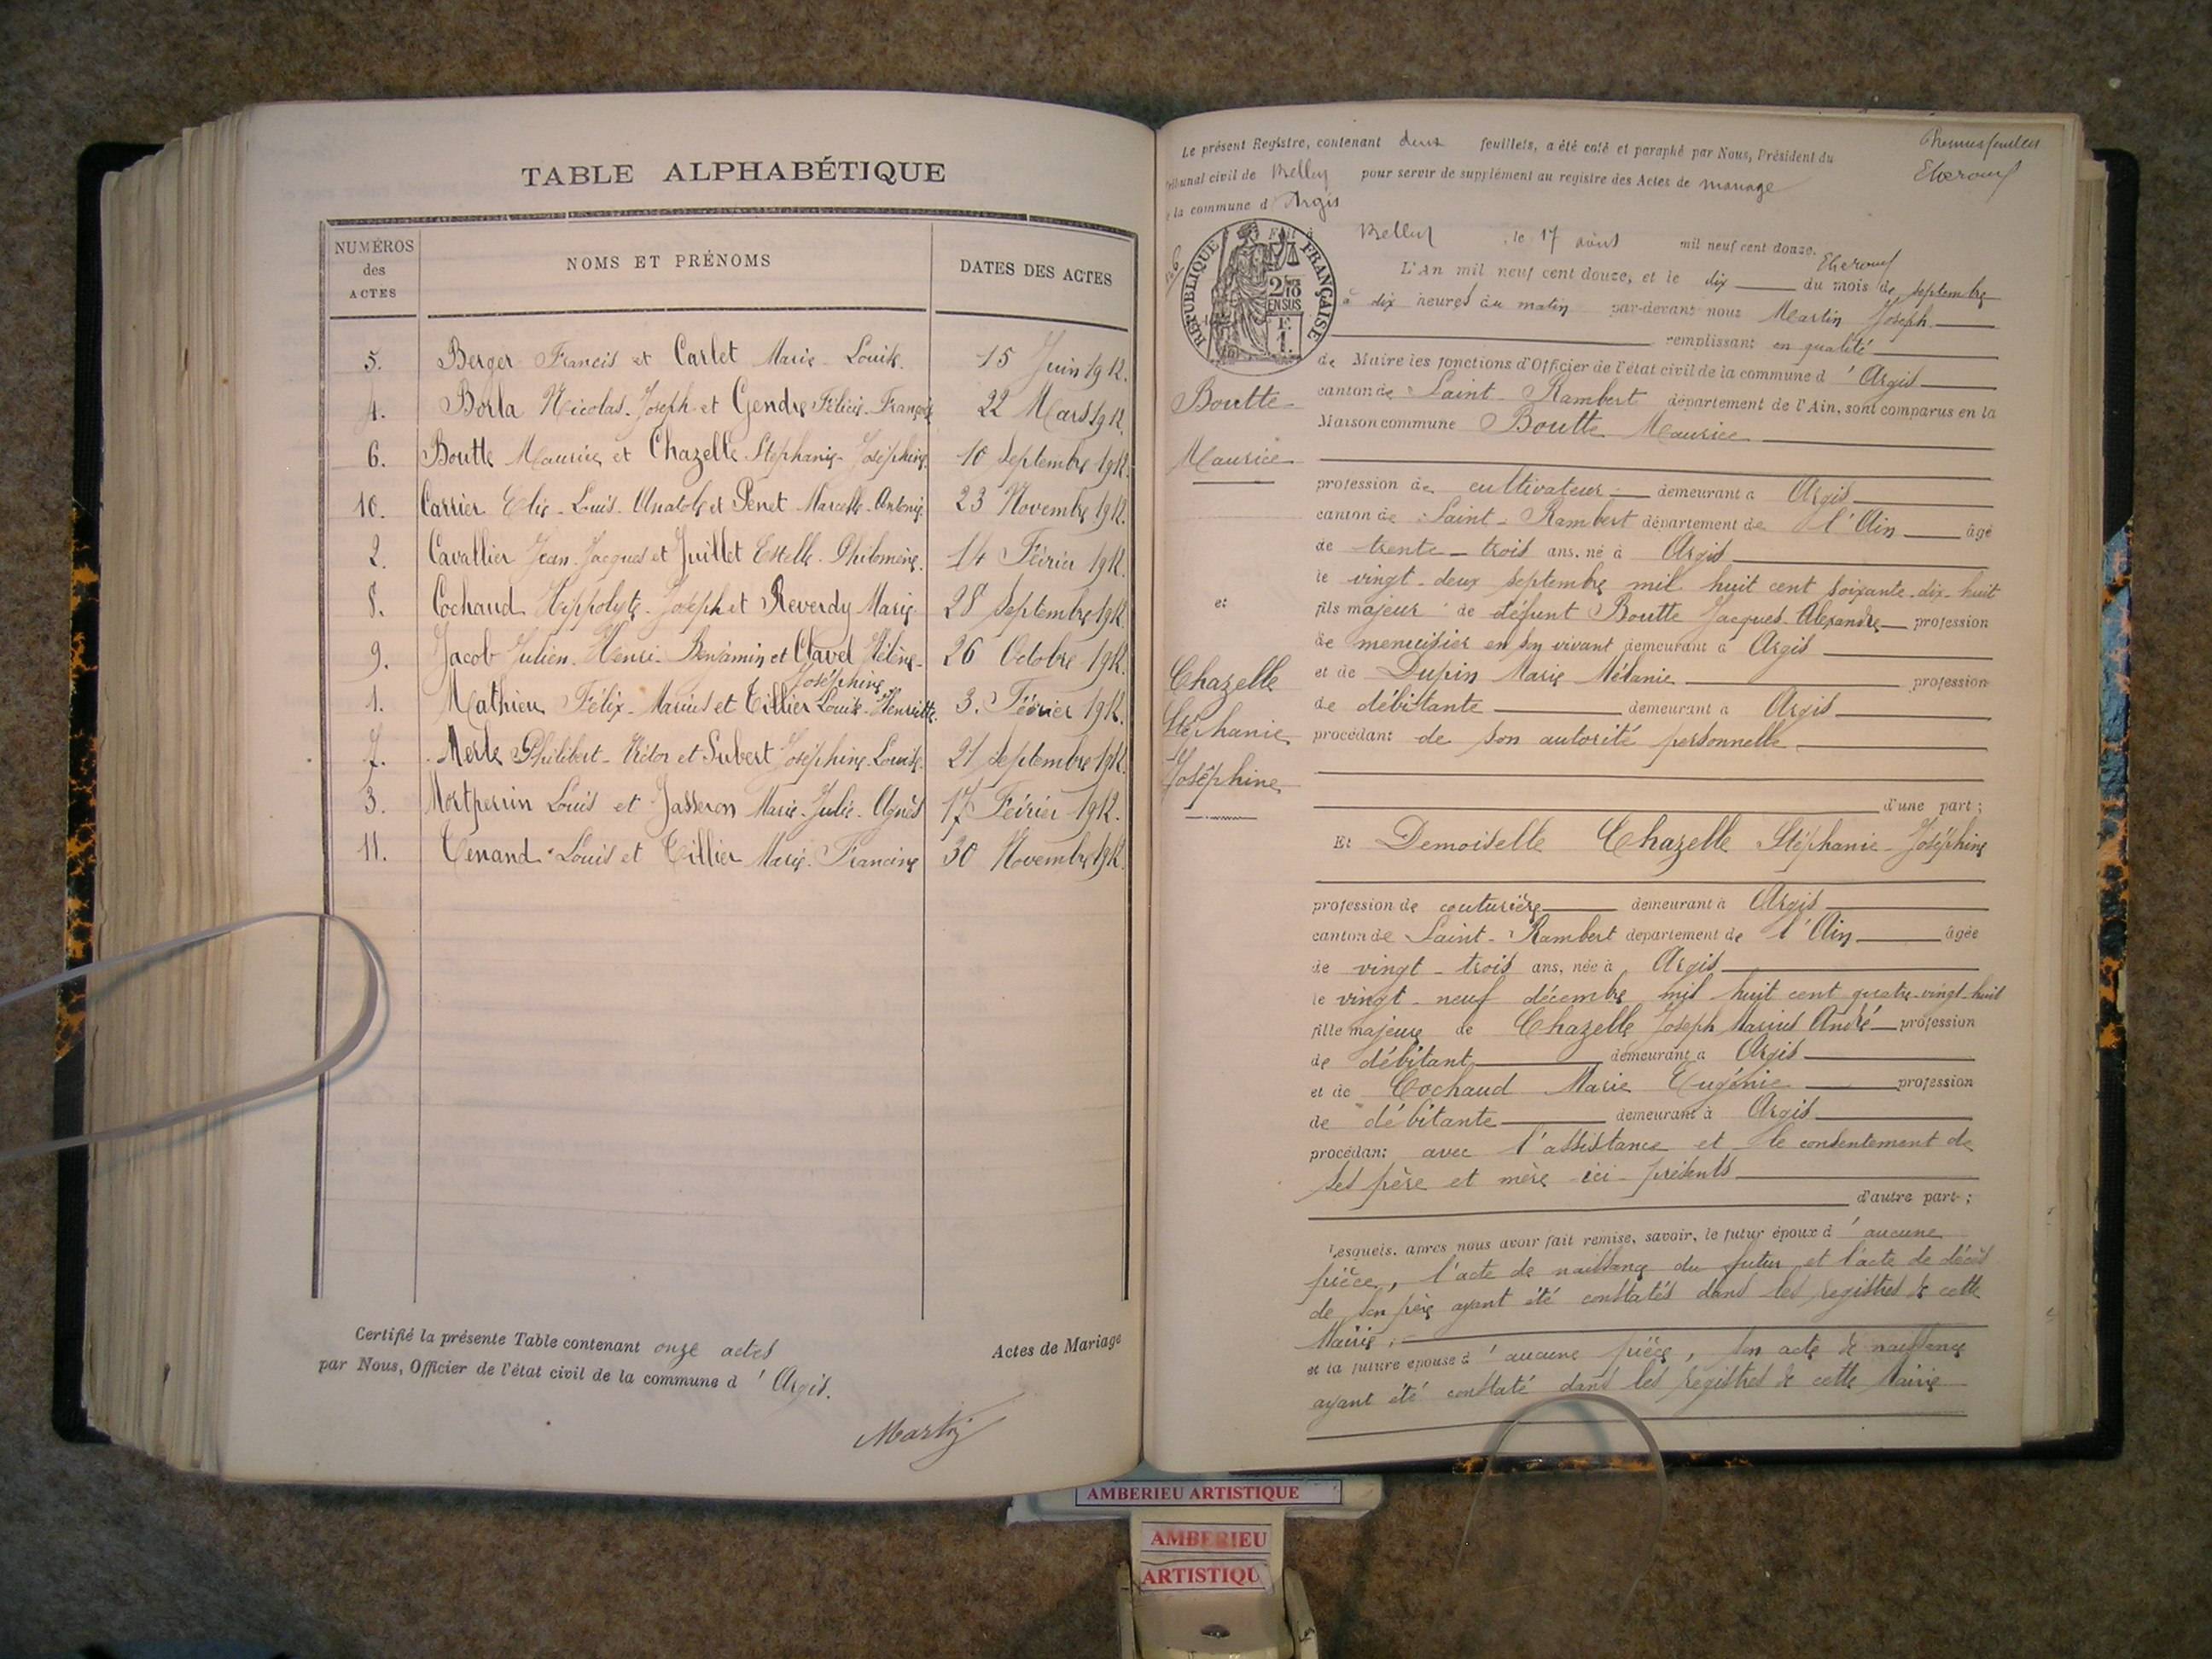 TABLE ALPHABÉTIQUE
NUMÉROS des ACTES
NOMS ET PRÉNOMS
DATES DES ACTES
5. Berger Francis et Carlet Marie-Louise. 15 Juin 1912.
4. Borla Nicolas-Joseph et Gendre Félicie-Françoise 22 Mars 1912.
6. Boutte Maurice et Chazelle Stéphanie-Joséphine 10 Septembre 1912.
10. Carrier Elie-Louis-Anatole et Penet Marcelle-Antonie 23 Novembre 1912.
2. Cavallier Jean-Jacques et Juillet Estelle-Philomène. 14 Février 1912.
8. Cochaud Hippolyte-Joseph et Reverdy Marie 28 Septembre 1912.
9. Jacob Julien-Henri-Benjamin et Clavel Hélène- 26 Octobre 1912.
Joséphine
1. Mathieu Félix-Marius et Tillier Louise-Henriette. 3. Février 1912.
7. Merle Philibert-Victor et Subert Joséphine-Louise 21 Septembre 1912.
3. Mortperrin Louis et Jasseron Marie-Julie-Agnès 17 Février 1912.
11. Tenand Louis et Tillier Marie-Francine 30 Novembre 1912.
Certifié la présente Table contenant onze actes
Actes de Mariage
par Nous, Officier de l'état civil de la commune d'Argis.
Martin
Le présent Registre, contenant deux feuillets, a été coté et paraphé par Nous, Président du
Tribunal civil de Belley pour servir de supplément au registre des Actes de mariage
de la commune d'Argis
Fait à Belley, le 17 août mil neuf cent douze.
RÉPUBLIQUE FRANÇAISE
2/10 EN SUS
L'An mil neuf cent douze, et le dix du mois de septembre
à dix heures du matin par-devant nous Martin Joseph
remplissant en qualité
de Maire les fonctions d'Officier de l'état civil de la commune d'Argis
canton de Saint-Rambert département de l'Ain, sont comparus en la
Maison commune Boutte Maurice
Boutte
Maurice
profession de cultivateur demeurant à Argis
canton de Saint-Rambert département de l'Ain âgé
de trente-trois ans, né à Argis
le vingt-deux septembre mil huit cent soixante-dix-huit
fils majeur de défunt Boutte Jacques-Alexandre profession
de menuisier en son vivant demeurant à Argis
et de Dupin Marie Mélanie profession
de débitante demeurant à Argis
procédant de son autorité personnelle
d'une part;
et
Chazelle
Stéphanie
Joséphine
Et Demoiselle Chazelle Stéphanie-Joséphine
profession de couturière demeurant à Argis
canton de Saint-Rambert département de l'Ain âgée
de vingt-trois ans, née à Argis
le vingt-neuf décembre mil huit cent quatre-vingt-huit
fille majeure de Chazelle Joseph Marius André profession
de débitant demeurant à Argis
et de Cochaud Marie Eugénie profession
de débitante demeurant à Argis
procédant avec l'assistance et le consentement de
ses père et mère ici-présents
d'autre part;
Lesquels, après nous avoir fait remise, savoir, le futur époux d'aucune
pièce, l'acte de naissance du futur et l'acte de décès
de son père ayant été constatés dans les registres de cette
Mairie.
et la future épouse d'aucune pièce, son acte de naissance
ayant été constaté dans les registres de cette Mairie
AMBERIEU ARTISTIQUE
AMBERIEU
ARTISTIQU